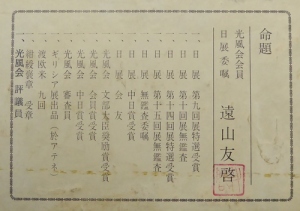 命題
光風会会員
日展委嘱
遠山友啓
・日展第九回展特選受賞
・日展第十回展無鑑査
・日展第十四回展特選受賞
・日展第十五回展無鑑査
・日展委嘱
・日展中日賞受賞
・日展会友
・光風会文部大臣奨励賞受賞
・光風会会員賞受賞
・光風会中日賞受賞
・光風会審査員
・ギリシア展出品(於アテネ)
・渡欧米九回
・紺綬褒章受章
・光風会評議員